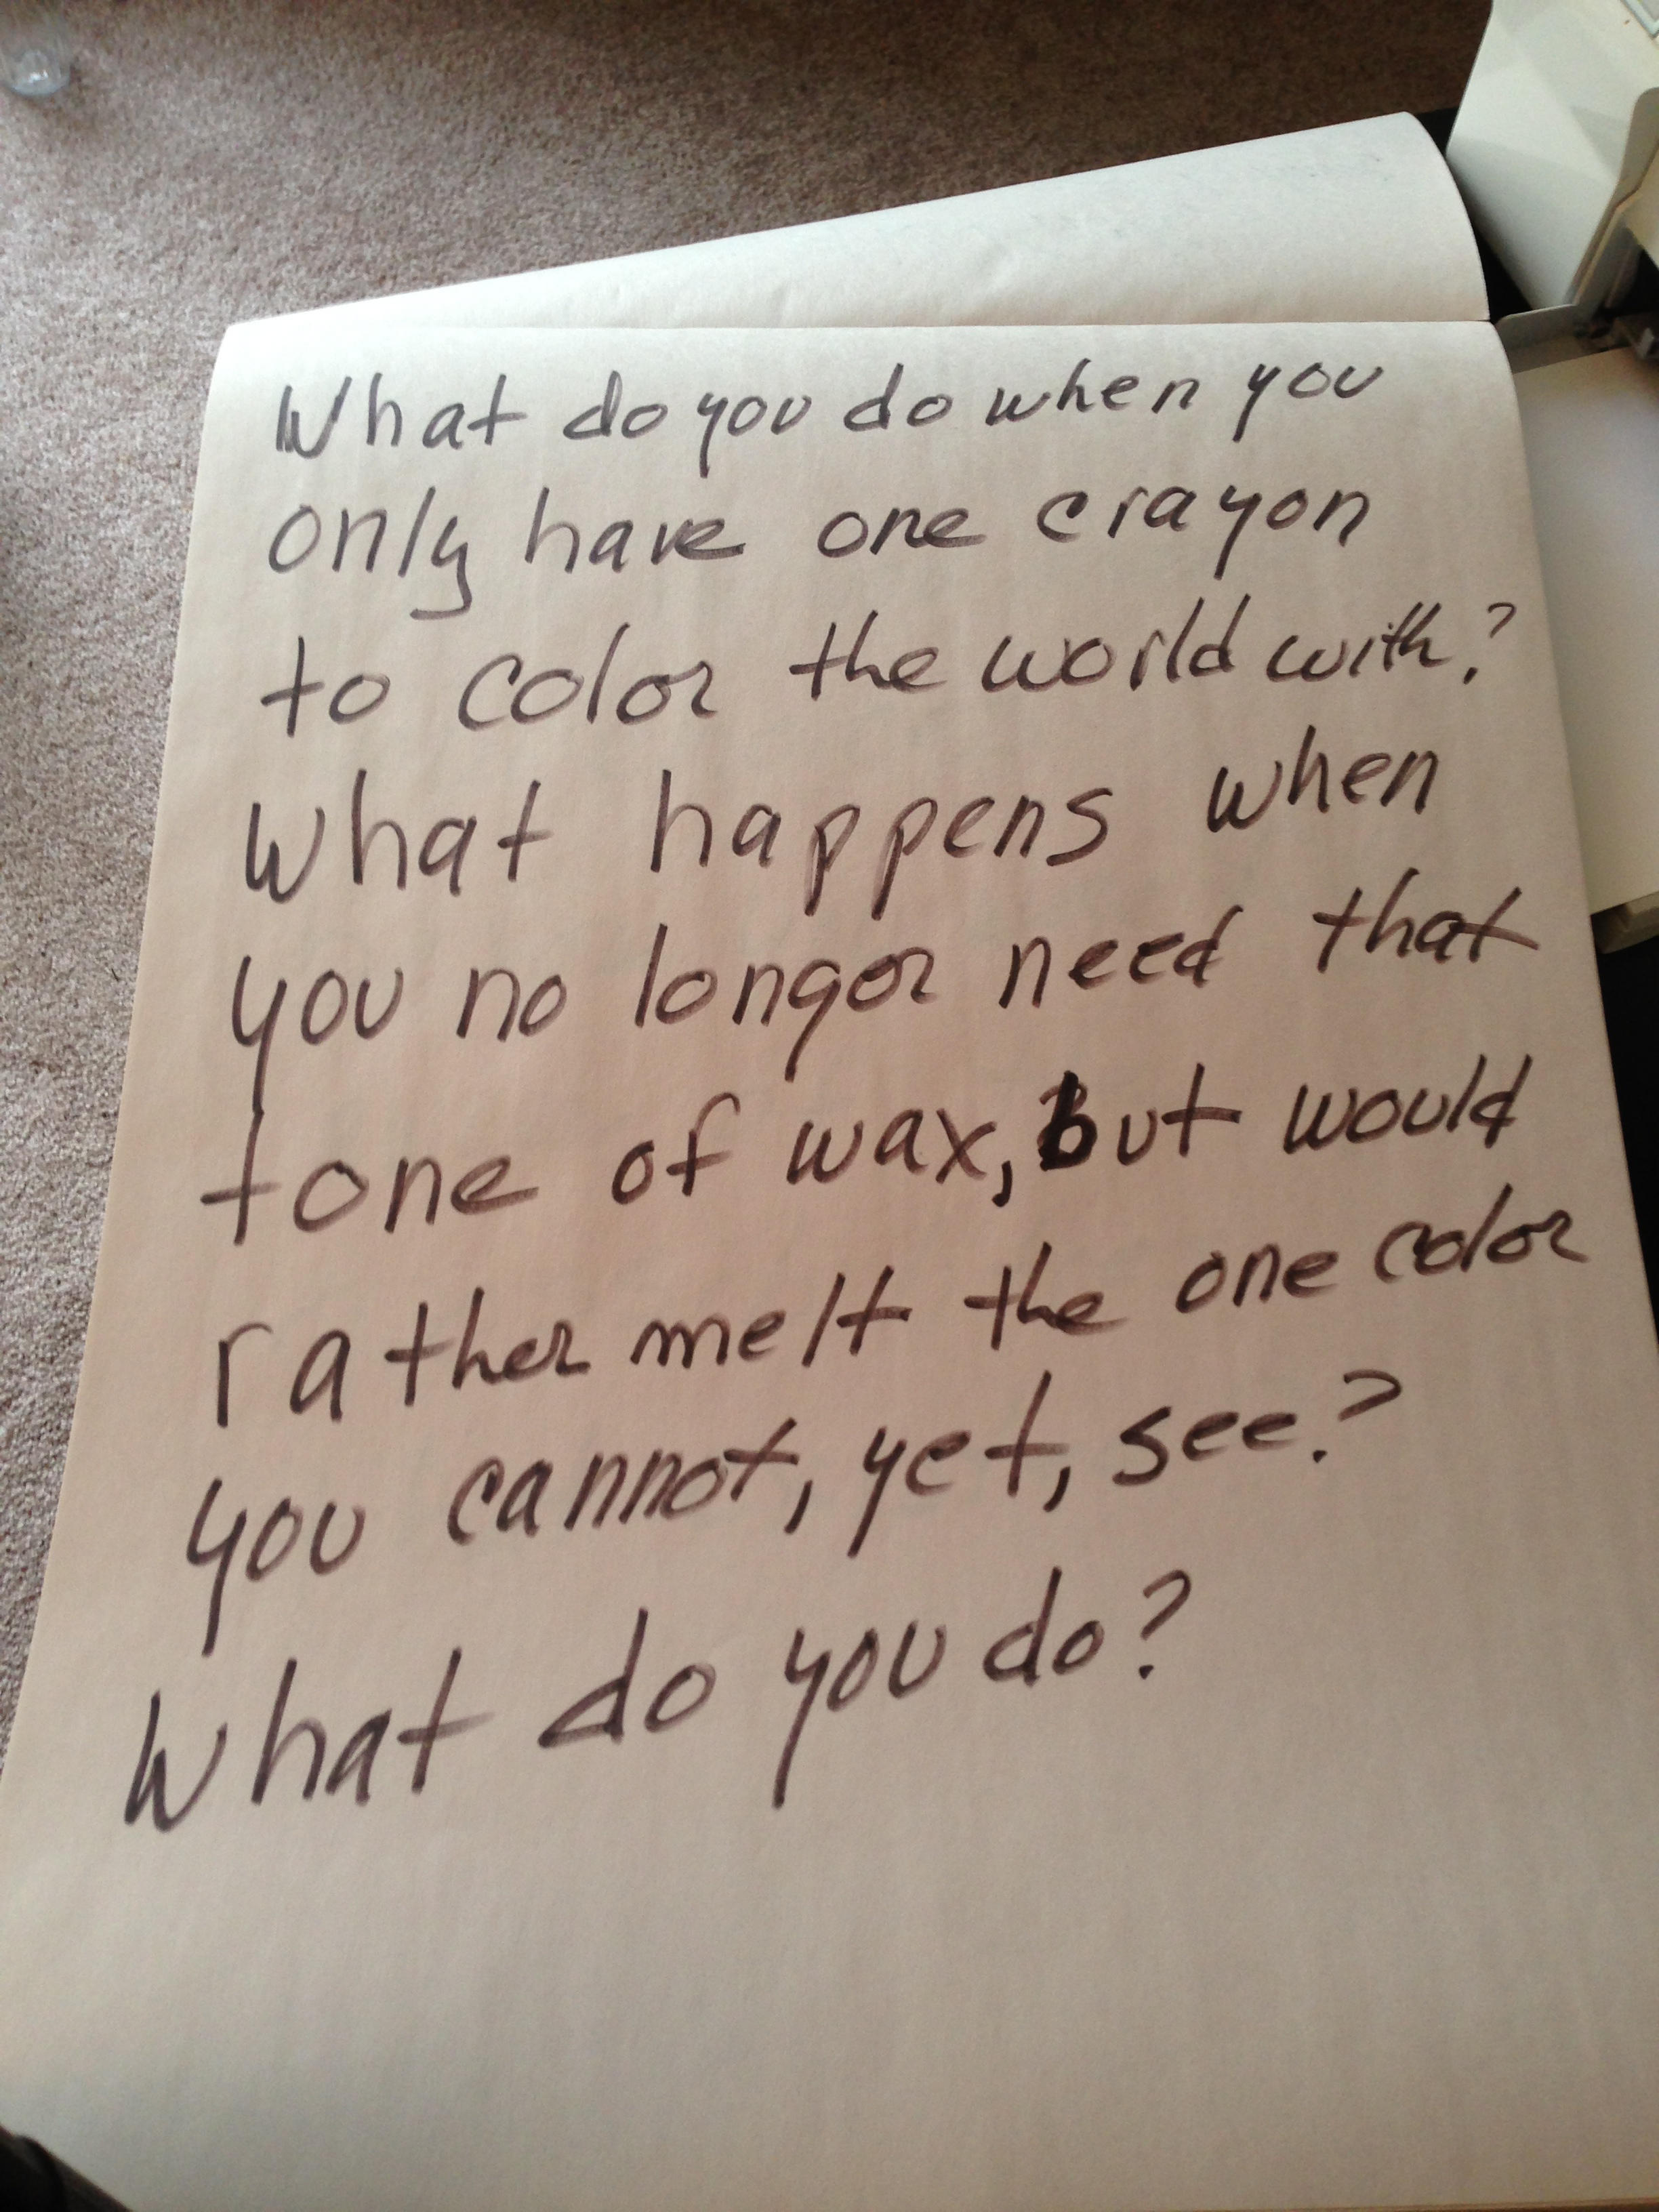 What do you do when you
only have one crayon
to color the world with?
What happens when
you no longer need that
tone of wax, but would
rather melt the one color
you cannot, yet, see?
What do you do?